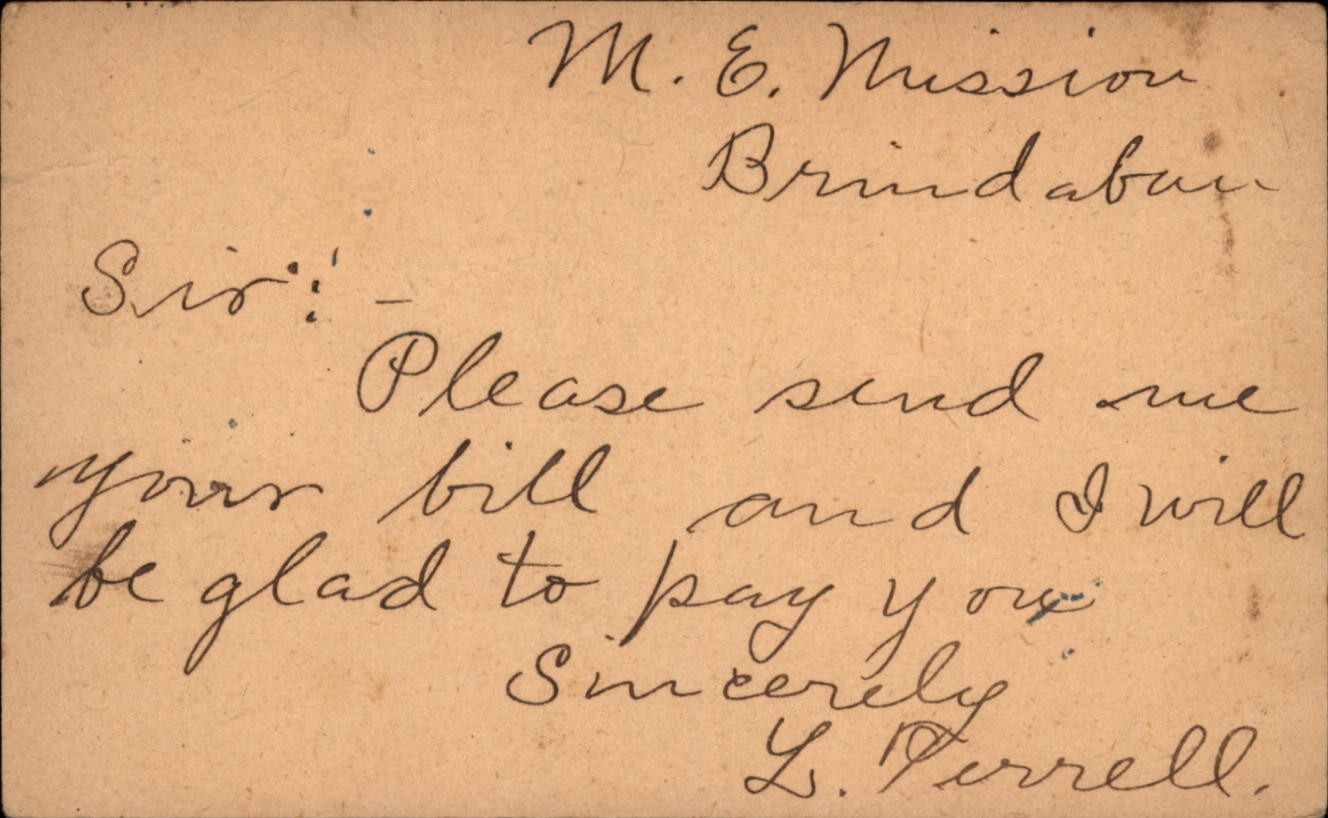 M. E. Mission
Brindaban
Sir:-
Please send me
your bill and I will
be glad to pay you
Sincerely
L. Terrell.